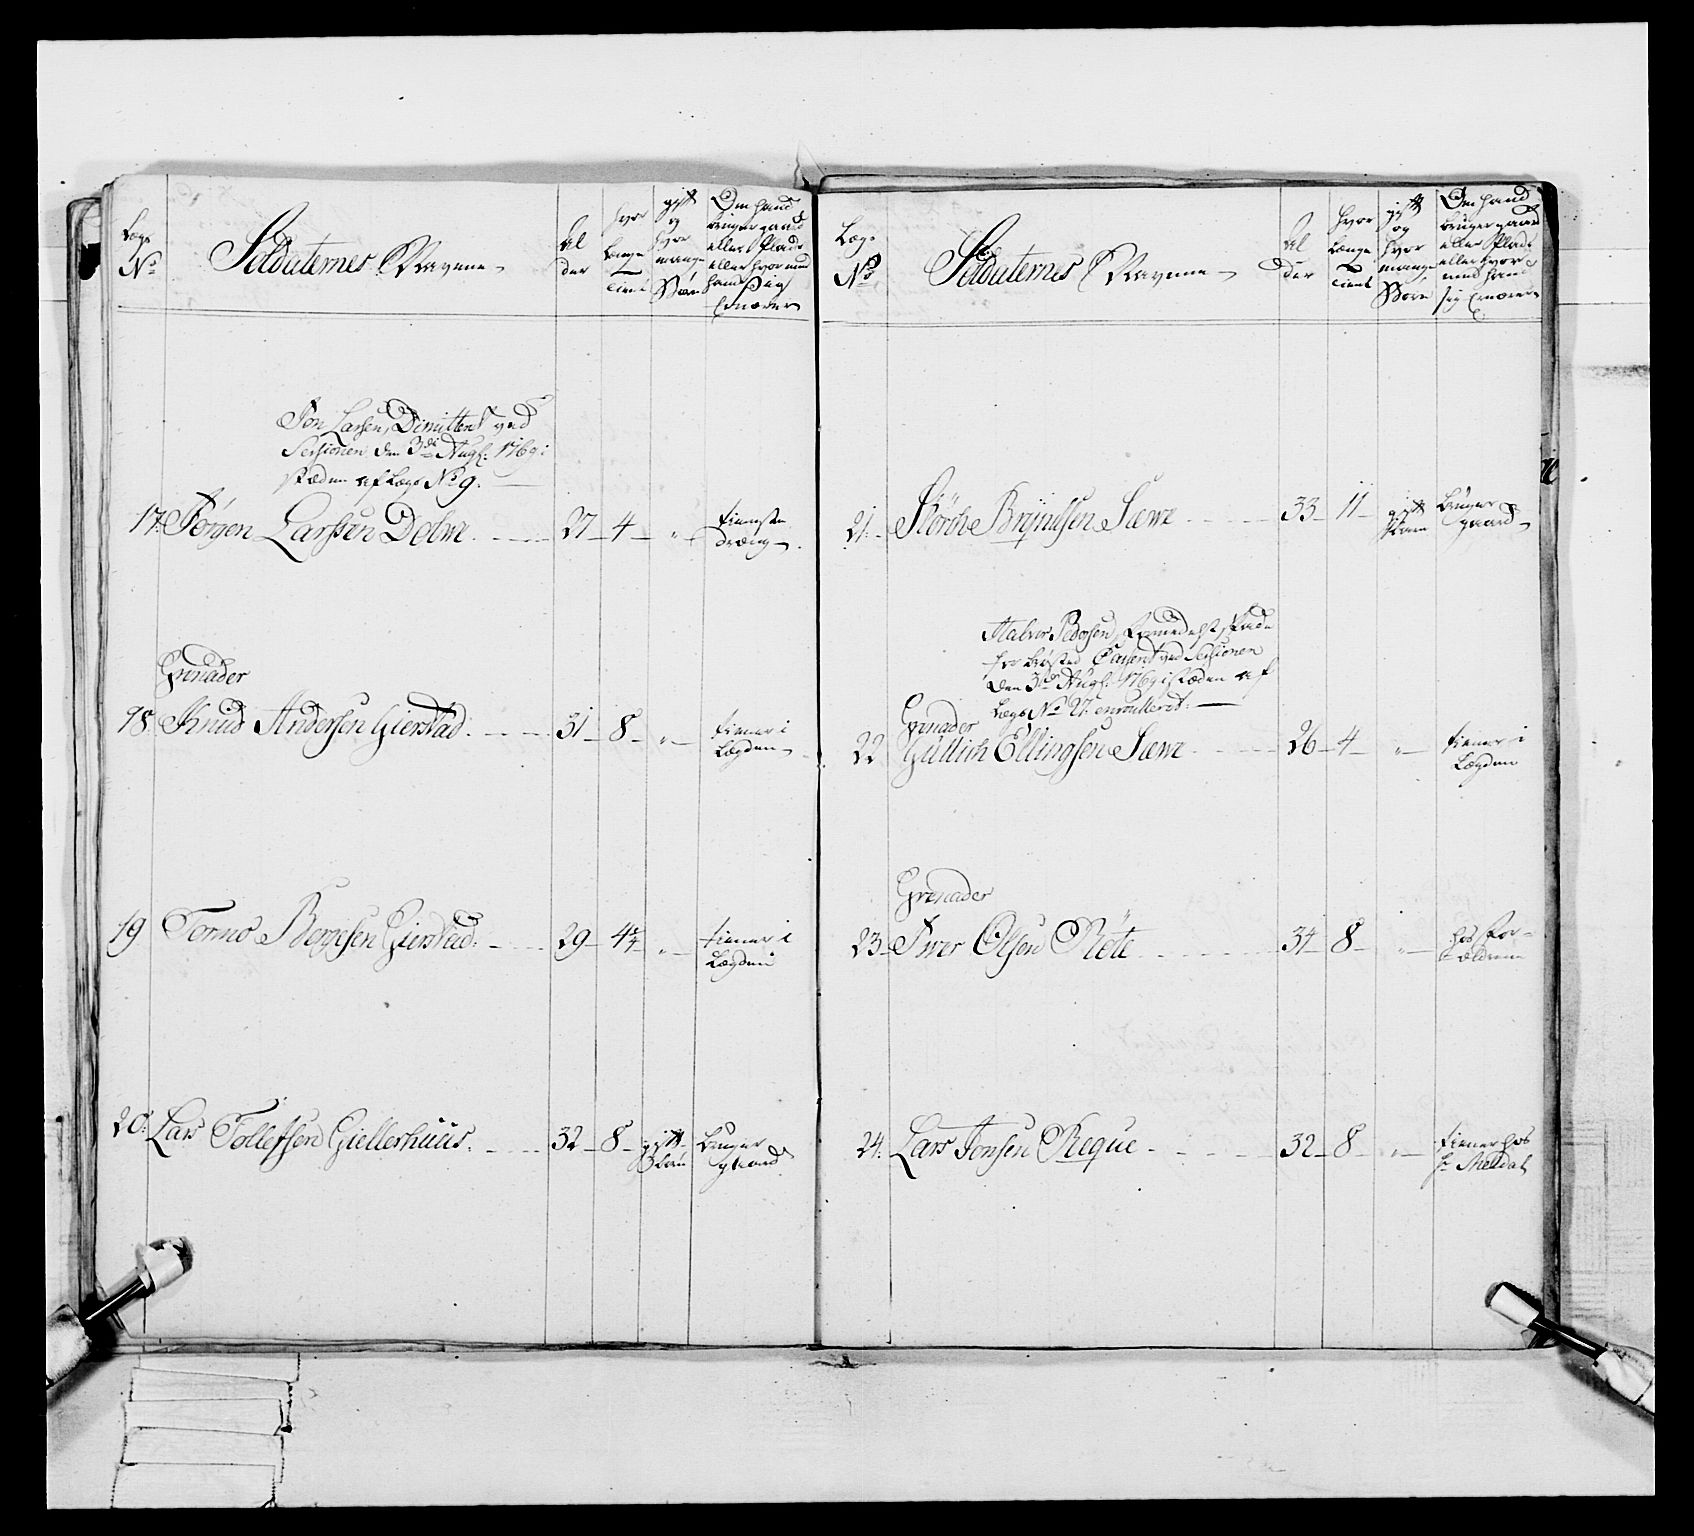 Lægs
No
Soldaternes Navne
Al
der
hvor
længe
tient
gift
og
hvor
mange
Børn
Om hand
bruger gaard
eller Plads
eller hvor med
hand sig
Ernærer
Jon Larsen, Dimitteret ved
Sessionen den 3die Aug: 1769 i
stæden af Lægs No 9.
17. Jørgen Larssen Dolve 27 4 "
tieniste
dreng
Grenader
18 Knud Andersen Gierstad 31 8 "
tiener i
Lægden
19 Tormo Bergesen Gierstad 29 4¾ "
tiener i
Lægden
20. Lars Tollefsen Giellerhuus 32 8
gift
3 børn
bruger
gaard
Lægs
No
Soldaternes Navne
Al
der
hvor
længe
tient
gift
og
hvor
mange
Børn
Om hand
bruger gaard
eller Plads
eller hvor
med hand
sig Ernærer
21. Størch Bryniلsen Sæve 33 11
gift
bruger
gaard
Halvor Pedersen, formedelst skade
for brystet Casseret ved Sessionen
den 3die Aug: 1769 i stæden af
Lægs No 27 enroulleret.
Grenader
22 Gullich Ellingsen Sæve 26 4 "
tiener i
Lægden
Grenader
23 Iwer Olsen Røte 34 8 "
hos For-
ældrene
24. Lars Jonsen Reque 32 8 "
tiener hos
hr Meldal